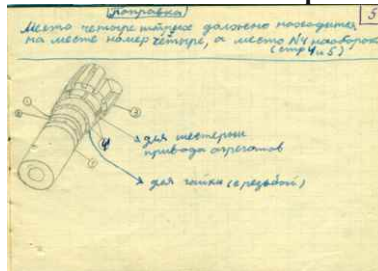 Поправка
5
Место четыре штрих должно находится
на месте номер четыре, а место №4 наоборот
(стр 4 и 5)
4
для шестерни
привода агрегатов
для гайки (с резьбой)